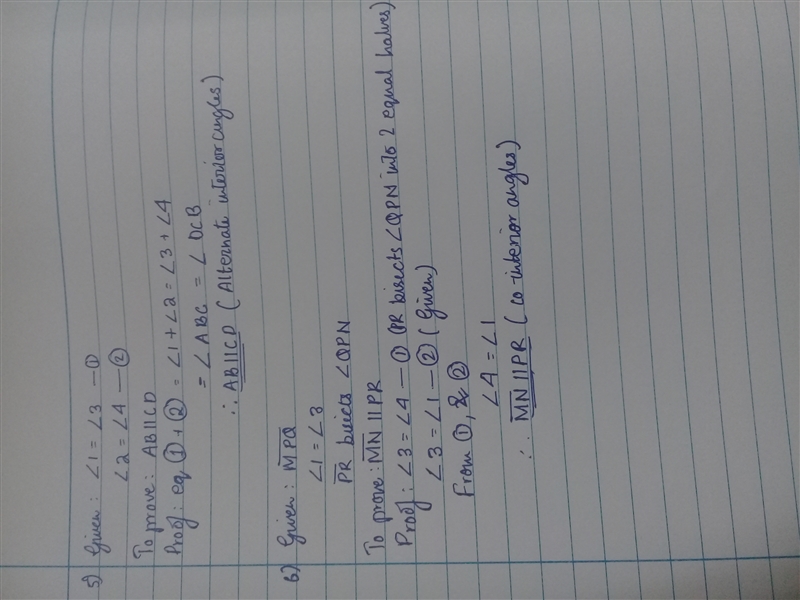 5) Given : ∠1 = ∠3 — ①
∠2 = ∠4 — ②
To prove : AB||CD
Proof : eq ① + ② = ∠1 + ∠2 = ∠3 + ∠4
= ∠ABC = ∠DCB
∴ AB||CD (Alternate interior angles)
6) Given : MPQ
∠1 = ∠3
PR bisects ∠QPN
To prove : MN || PR
Proof : ∠3 = ∠4 — ① (PR bisects ∠QPN into 2 equal halves)
∠3 = ∠1 — ② (Given)
From ①, & ②
∠4 = ∠1
∴ MN || PR (co interior angles)